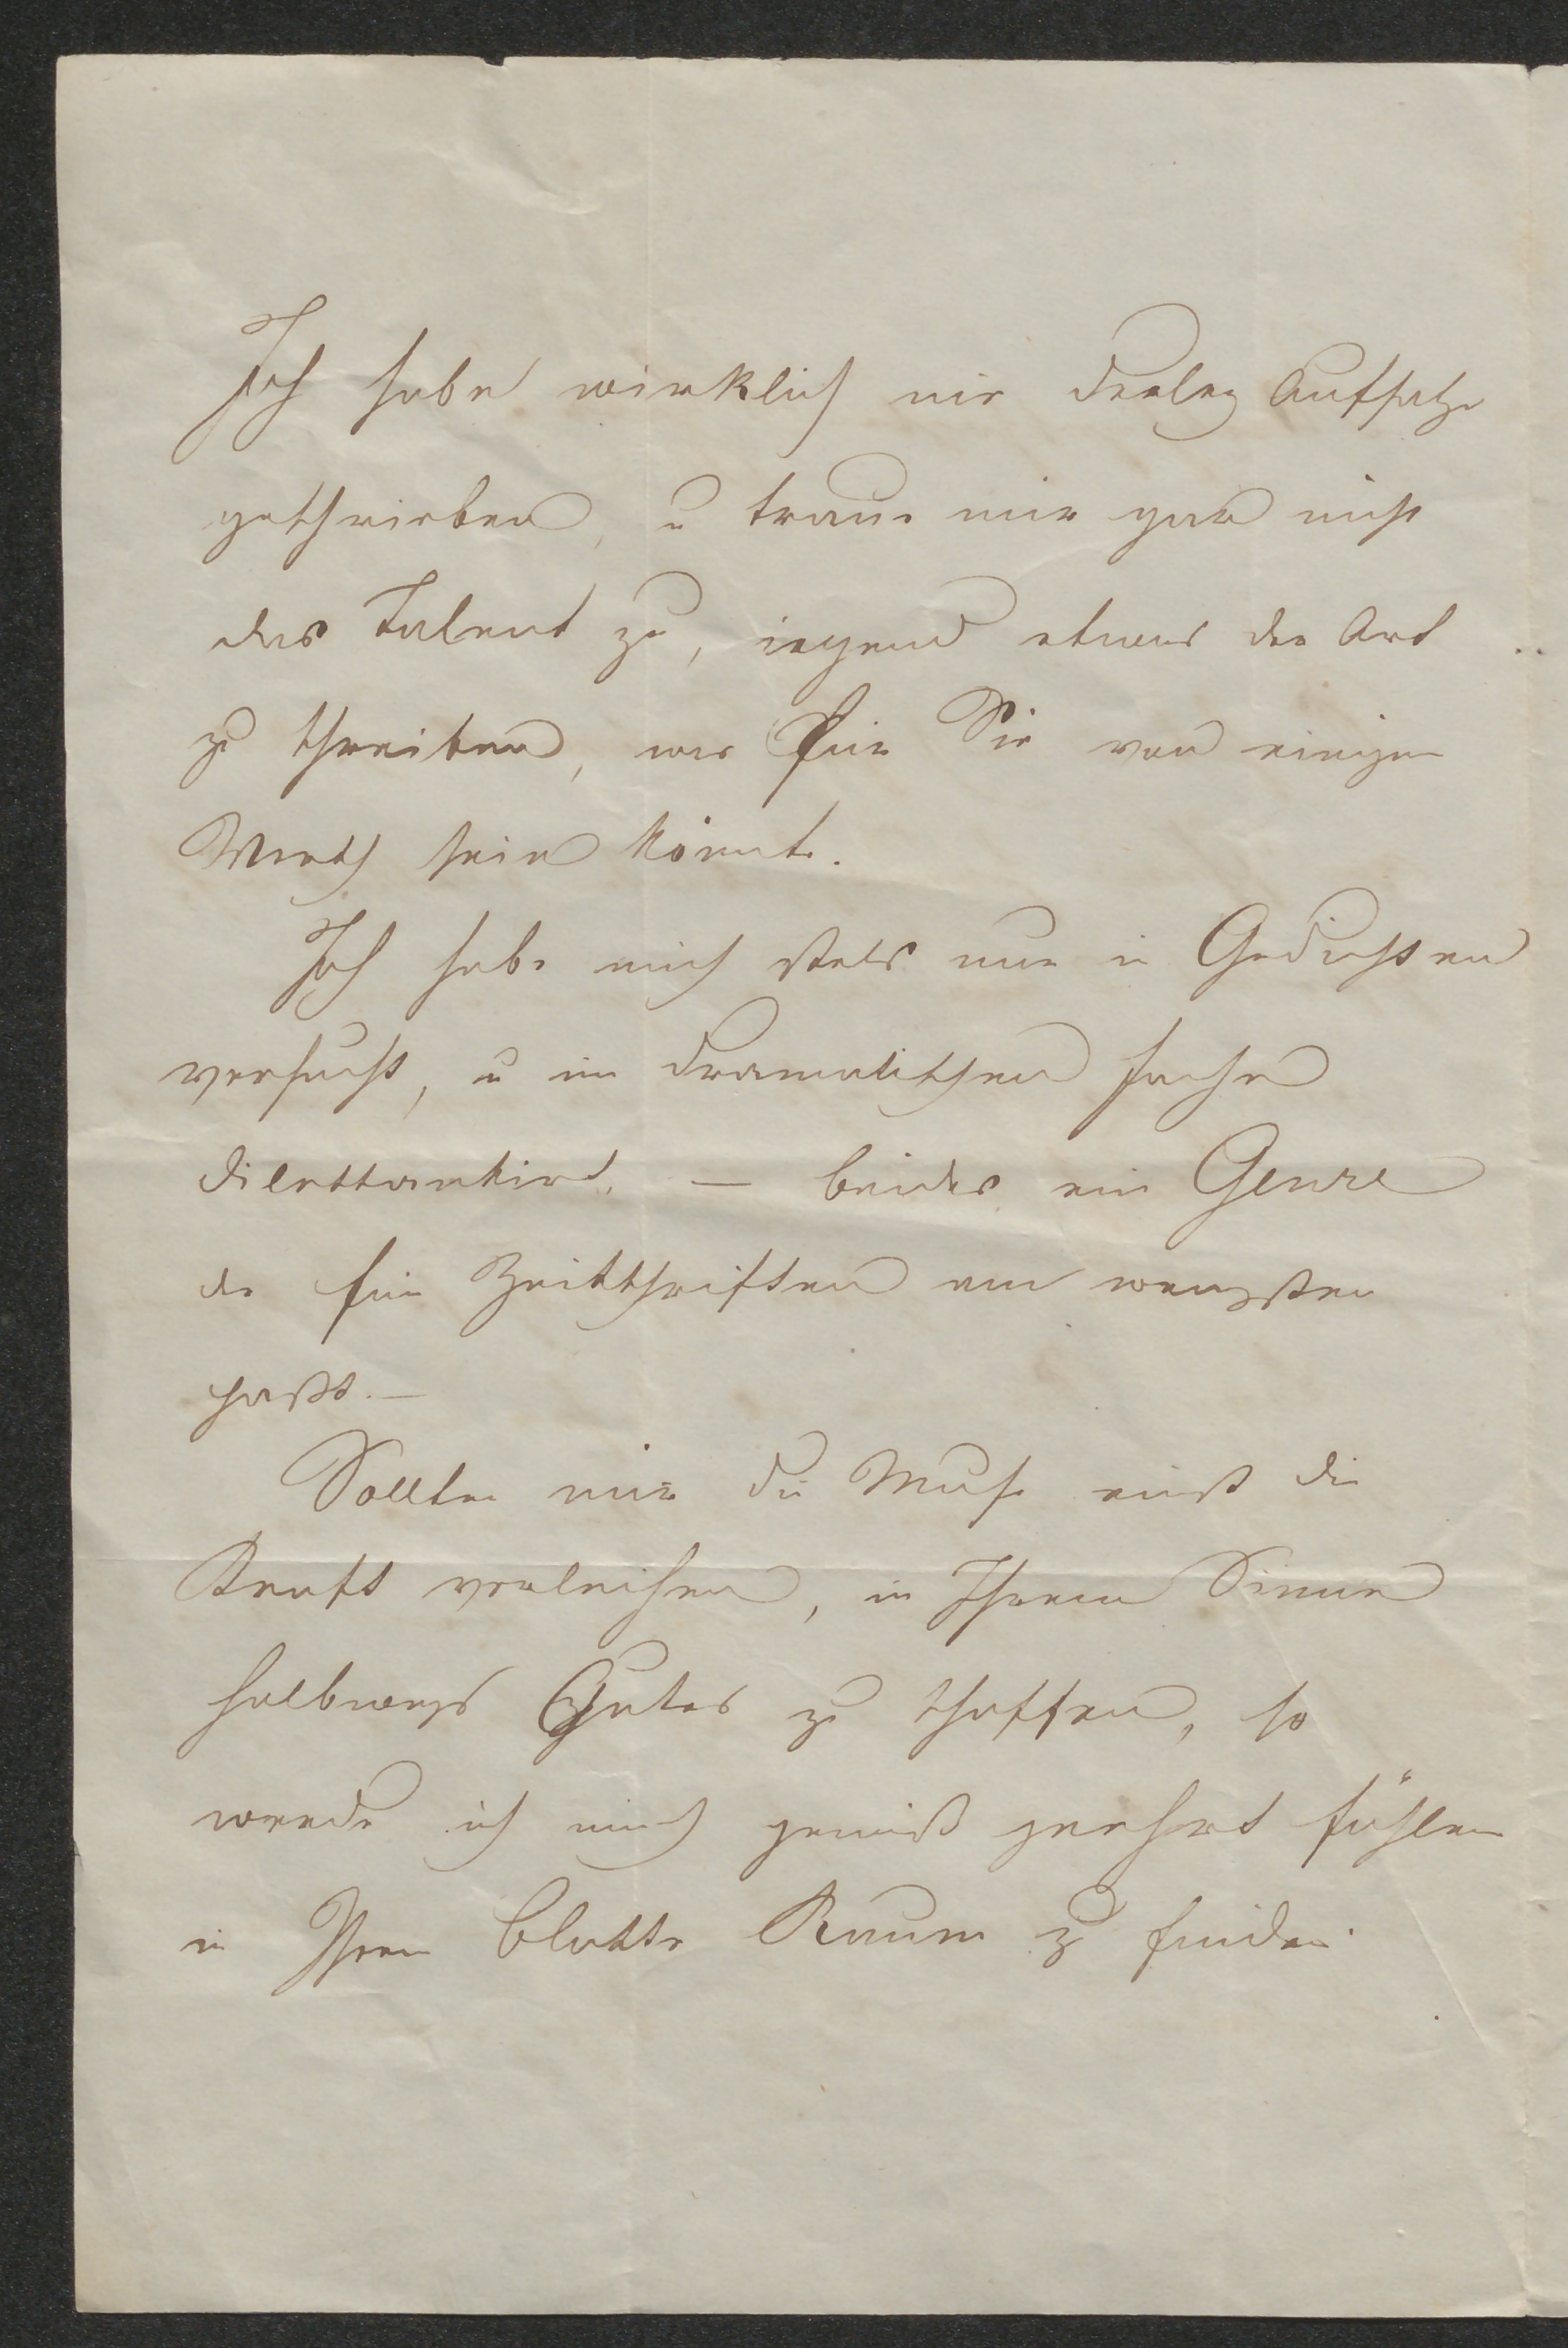 Ich habe wirklich nie derley Aufsatze
geschrieben, u traue mir gar nicht
das Talent zu, irgend etwas der Art
zu schreiben, was für Sie von einigen
Werth sein könnte.
Ich habe mich stets nur in Gedichten
versucht, u im dramatischen Fache
dilettantirt, — beides ein Genre
das für Zeitschriften am wenigsten
paßt. —
Sollte mir die Muse einst die
Kraft verleihen, in Ihrem Sinne
halbwegs Gutes zu schaffen, so
werde ich mich gewiß geehrt fühlen
in Ihrem Blatte Raum zu finden.